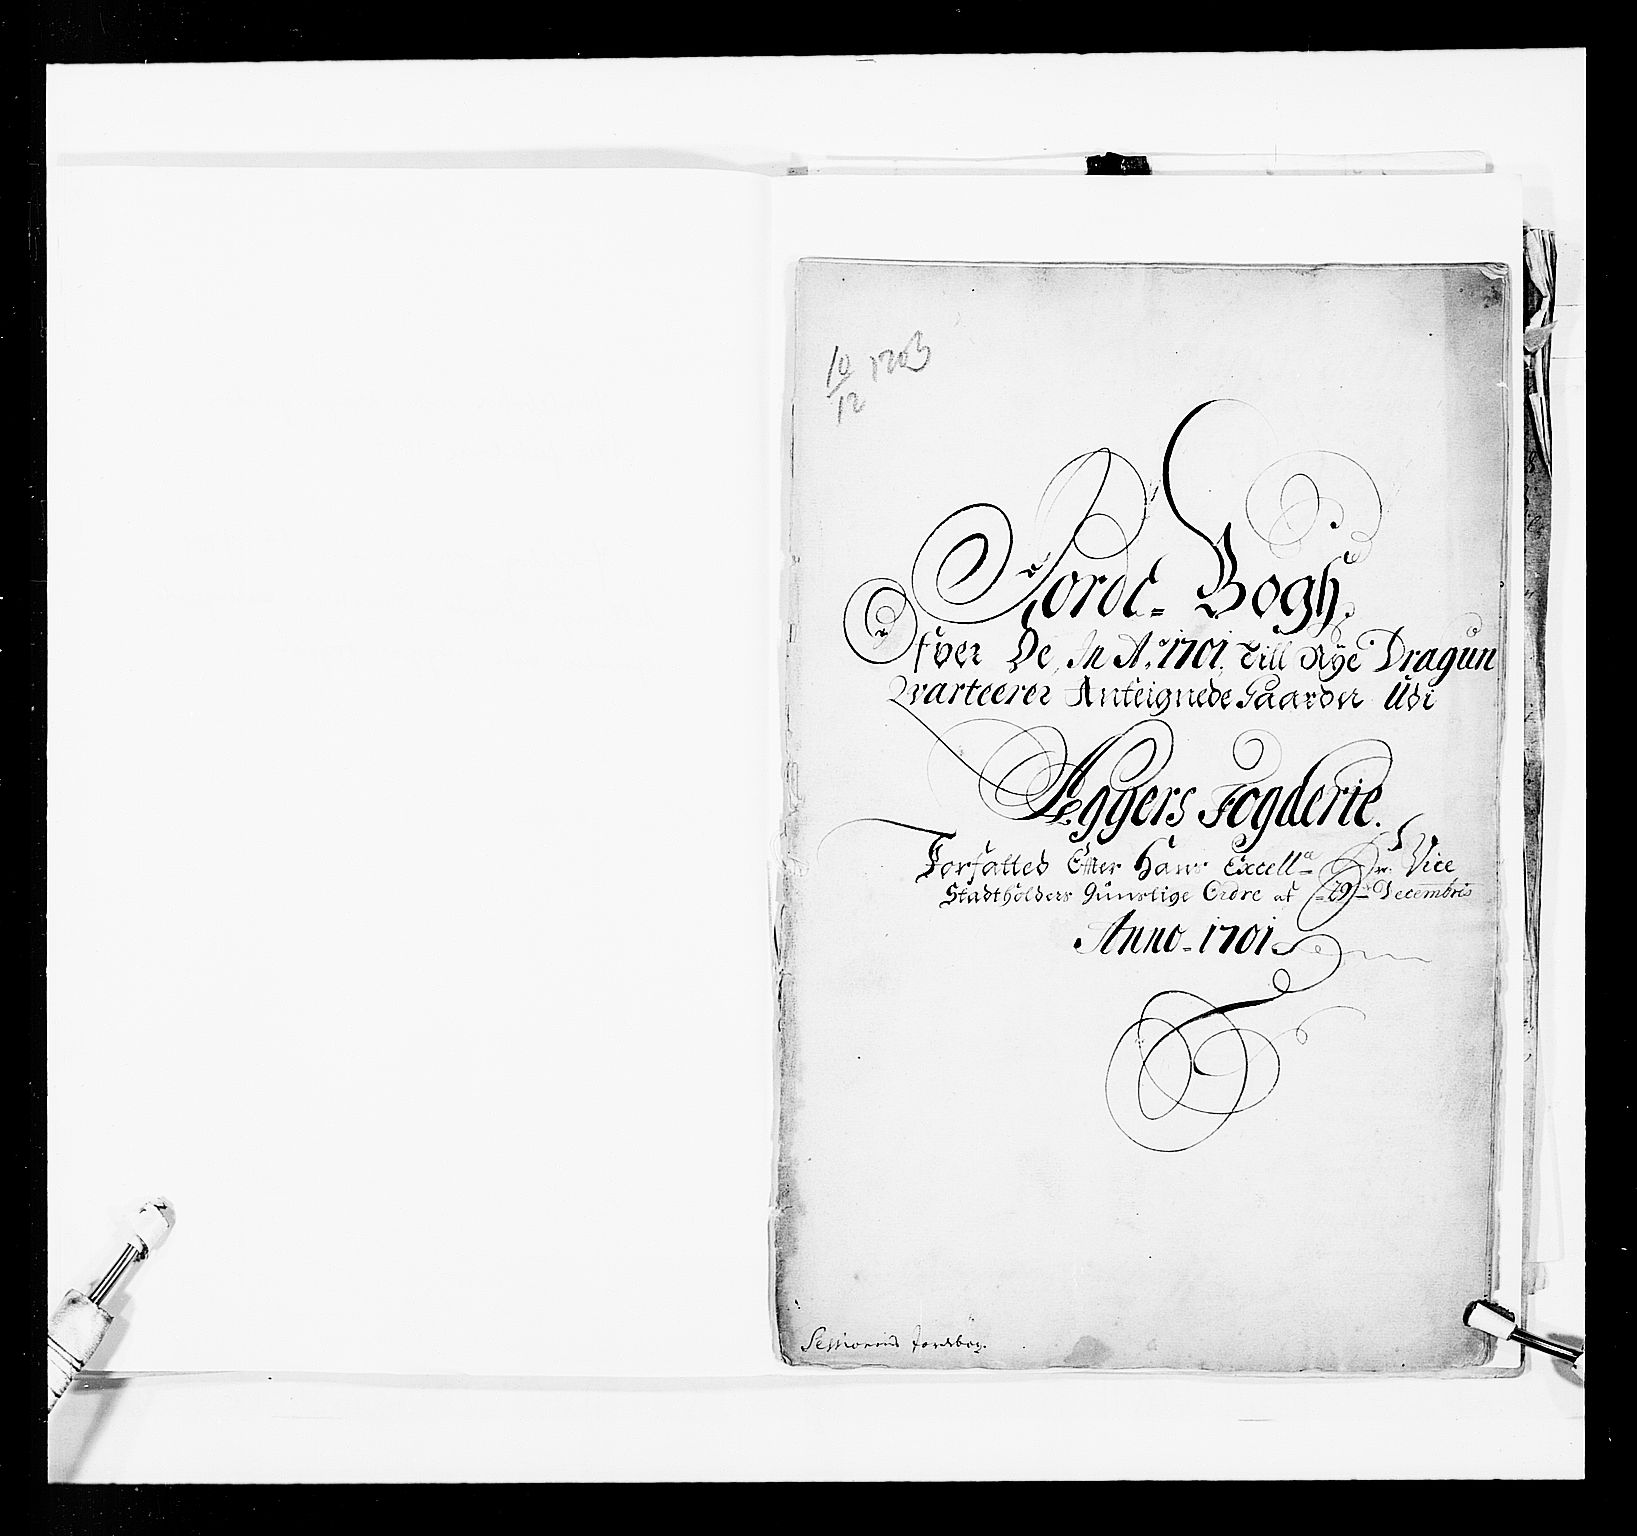 10/12 1703
Jorde-Bogh
Ofver De, In A:o 1701, Till Nye Dragun
Qvarteerer Anteignede Gaarder Udi
Aggers Fogderie.
Forfatted Efter Hans Excell:ce Hr. Vice
Stadtholders Günstige Ordre af 29 Decembris
Anno-1701
Sessionens Jordebog.